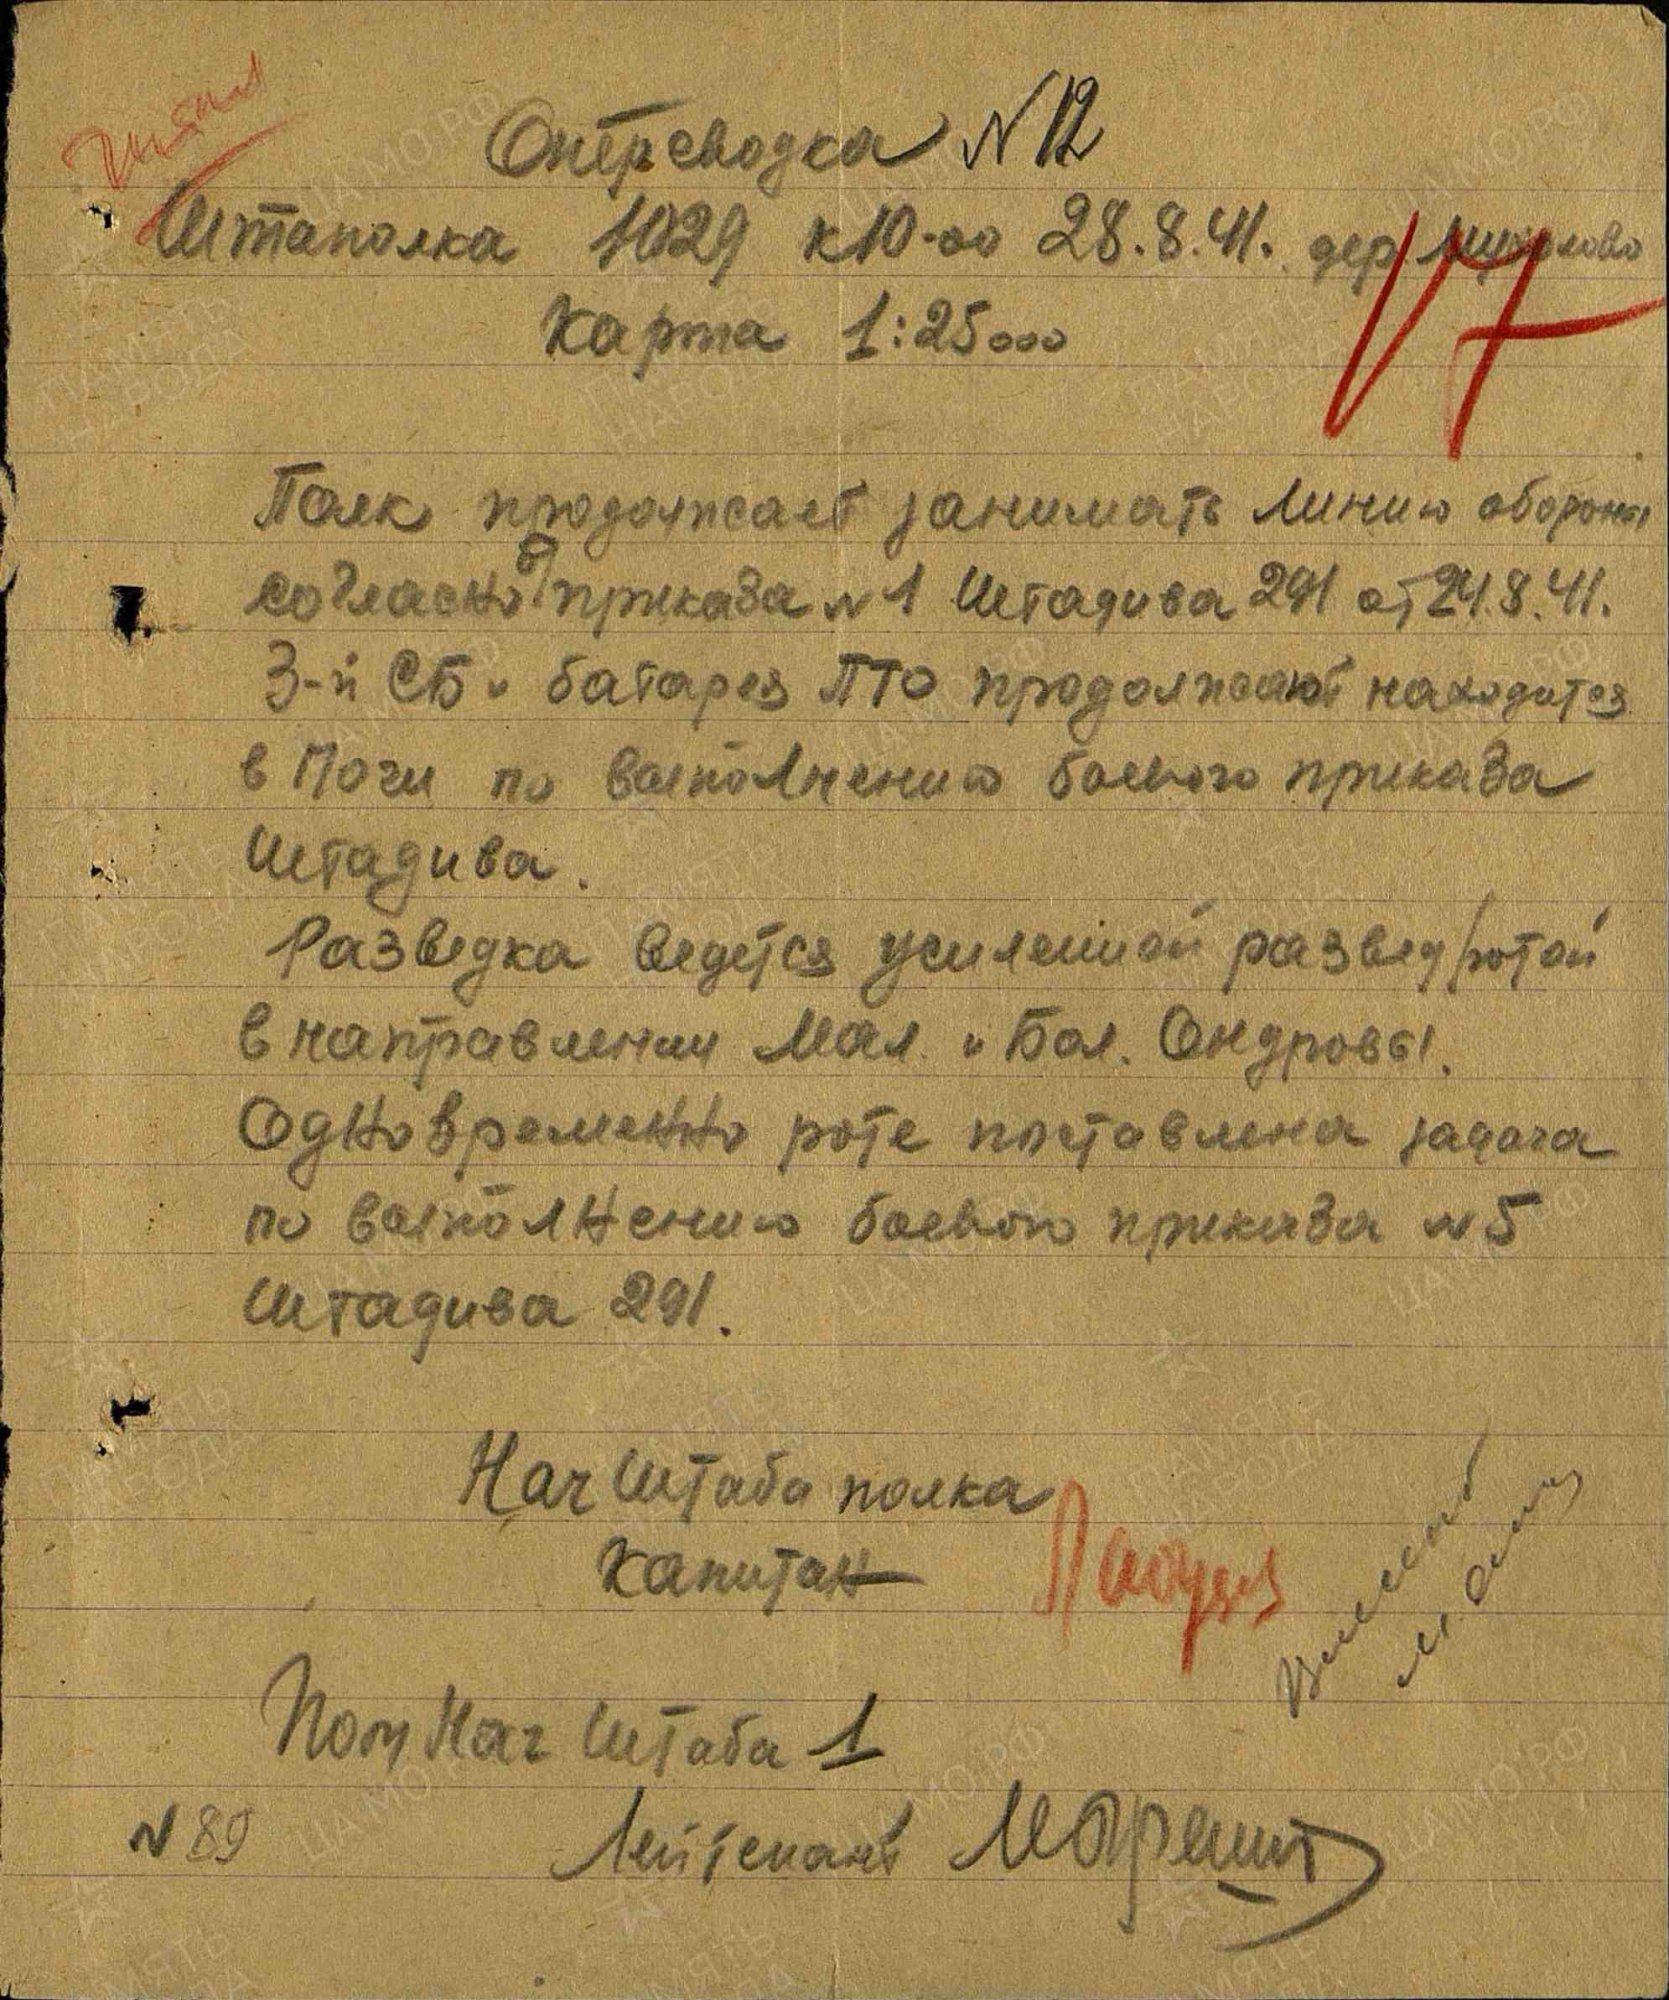 Оперсводка №12
Штаполка 1029 к 10-00 28.8.41. дер.
Карта 1:25000
17
Полк продолжает занимать линию обороны
согласно б/приказа №1 Штадива 291 от 24.8.41.
3-й СБ и батарея ПТО продолжают находится
в Почи по выполнению боевого приказа
Штадива.
Разведка ведется усиленной развед/ротой
в направлении Мал. и Бол. Ондровы.
Одновременно роте поставлена задача
по выполнению боевого приказа №5
Штадива 291.
Нач Штаба полка
Капитан
Пом Нач Штаба 1
№ 89
Лейтенант